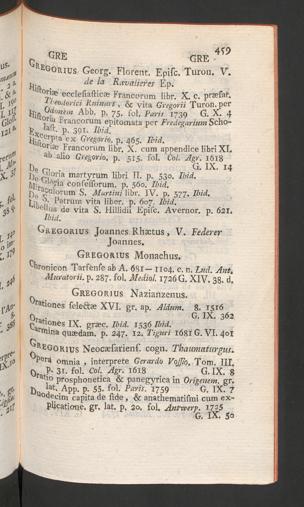 459
GRE GRE
GREGORIUS Georg. Florent. Episc. Turon. V.
de la Ravalieres Ep.
Historiæ ecclesiasticæ Francorum libr. X. c. præfat.
Theodorici Ruinart, & vita Gregorii Turon. per
Odonem Abb. p. 75. fol. Paris 1739 G. X. 4
Historia Francorum epitomata per Fredegarium Scho-
last. p. 391. Ibid.
Excerpta ex Gregorio, p. 465. Ibid.
Historiæ Francorum libr. X. cum appendice libri XI.
ab alio Gregorio, p. 515. fol. Col. Agr. 1618
G. IX. 14
De Gloria martyrum libri II. p. 530. Ibid.
De Gloria confessorum, p. 560. Ibid.
Miraculorum S. Martini libr. IV. p. 577. Ibid.
De S. Patrum vita liber. p. 607. Ibid.
Libellus de vita S. Hillidii Episc. Avernor. p. 621.
Ibid.
GREGORIUS Joannes Rhætus, V. Federer
Joannes.
GREGORIUS Monachus.
Chronicon Tarfense ab A. 681 — 1104. c. n. Lud. Ant.
Muratorii. p. 287. fol. Mediol. 1726 G. XIV. 38. d.
GREGORIUS Nazianzenus.
Orationes selectæ XVI. gr. ap. Aldum. 8. 1516
G. IX. 362
Orationes IX. græc. Ibid. 1536 Ibid.
Carmina quædam. p. 247. 12. Tiguri 1681 G. VI. 401
GREGORIUS Neocæsariens. cogn. Thaumaturgus.
Opera omnia, interprete Gerardo Vossio, Tom. III.
p. 31. fol. Col. Agr. 1618 G. IX. 8
Oratio prosphonetica & panegyrica in Origenem, gr.
lat. App. p. 55. fol. Paris. 1759 G. IX. 7
Duodecim capita de fide, & anathematismi cum ex-
plicatione. gr. lat. p. 20. fol. Antwerp. 1725
G. IX. 50